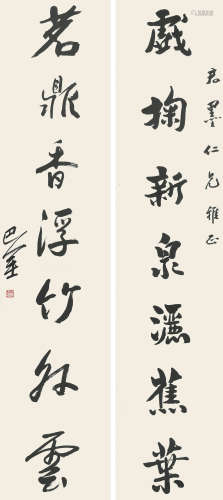 君墨仁兄雅正
戲掬新泉灑蕉葉
茗鼎香浮竹外雲